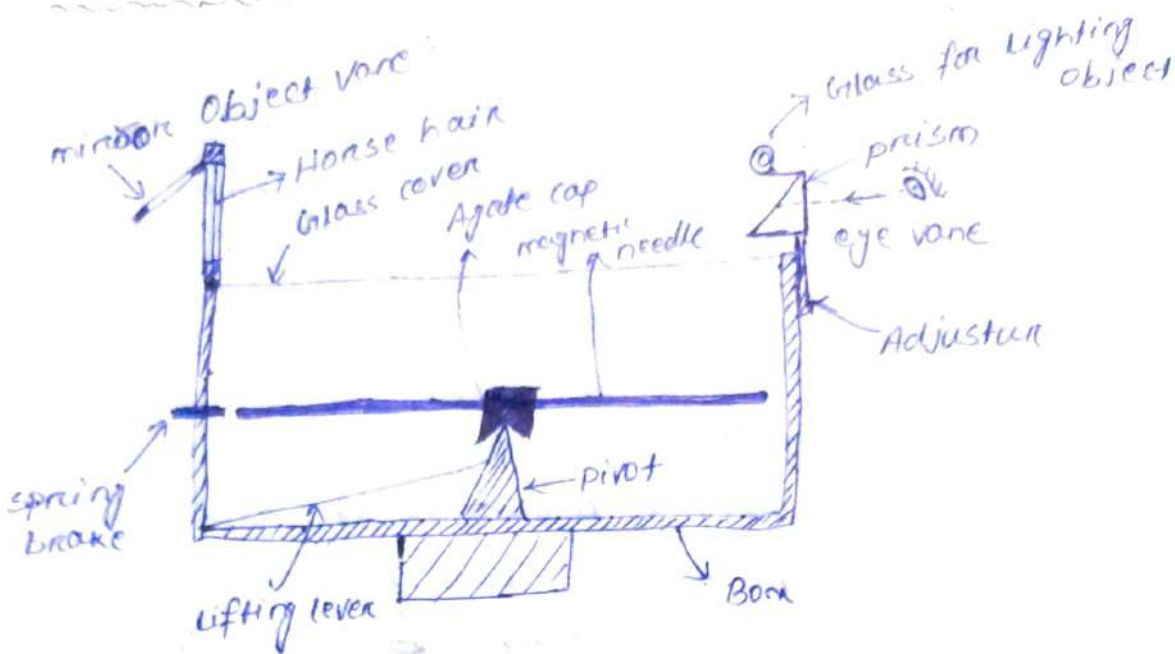 Object vane
mirror
Horse hair
Glass cover
Agate cap
magnetic
needle
Glass for Lighting
Object
prism
eye vane
Adjustur
spring
brake
pivot
Lifting lever
Box